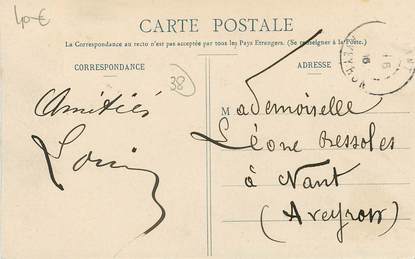 40€
CARTE POSTALE
La Correspondance au recto n'est pas acceptée par tous les Pays Etrangers. (Se renseigner à la Poste.)
CORRESPONDANCE
ADRESSE
38
Amitiés
Mademoiselle
Léone Bessoles
à Nant
(Aveyron)